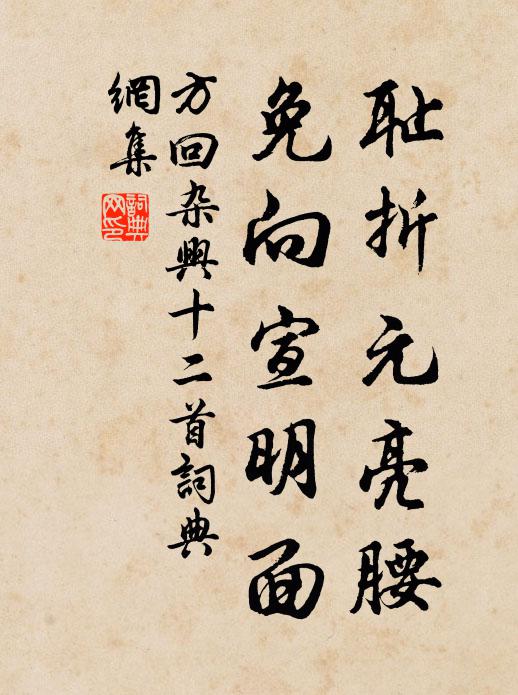 耻折元亮腰
免向宣明面
方回杂興十二首詞典
網集
詞典
网印